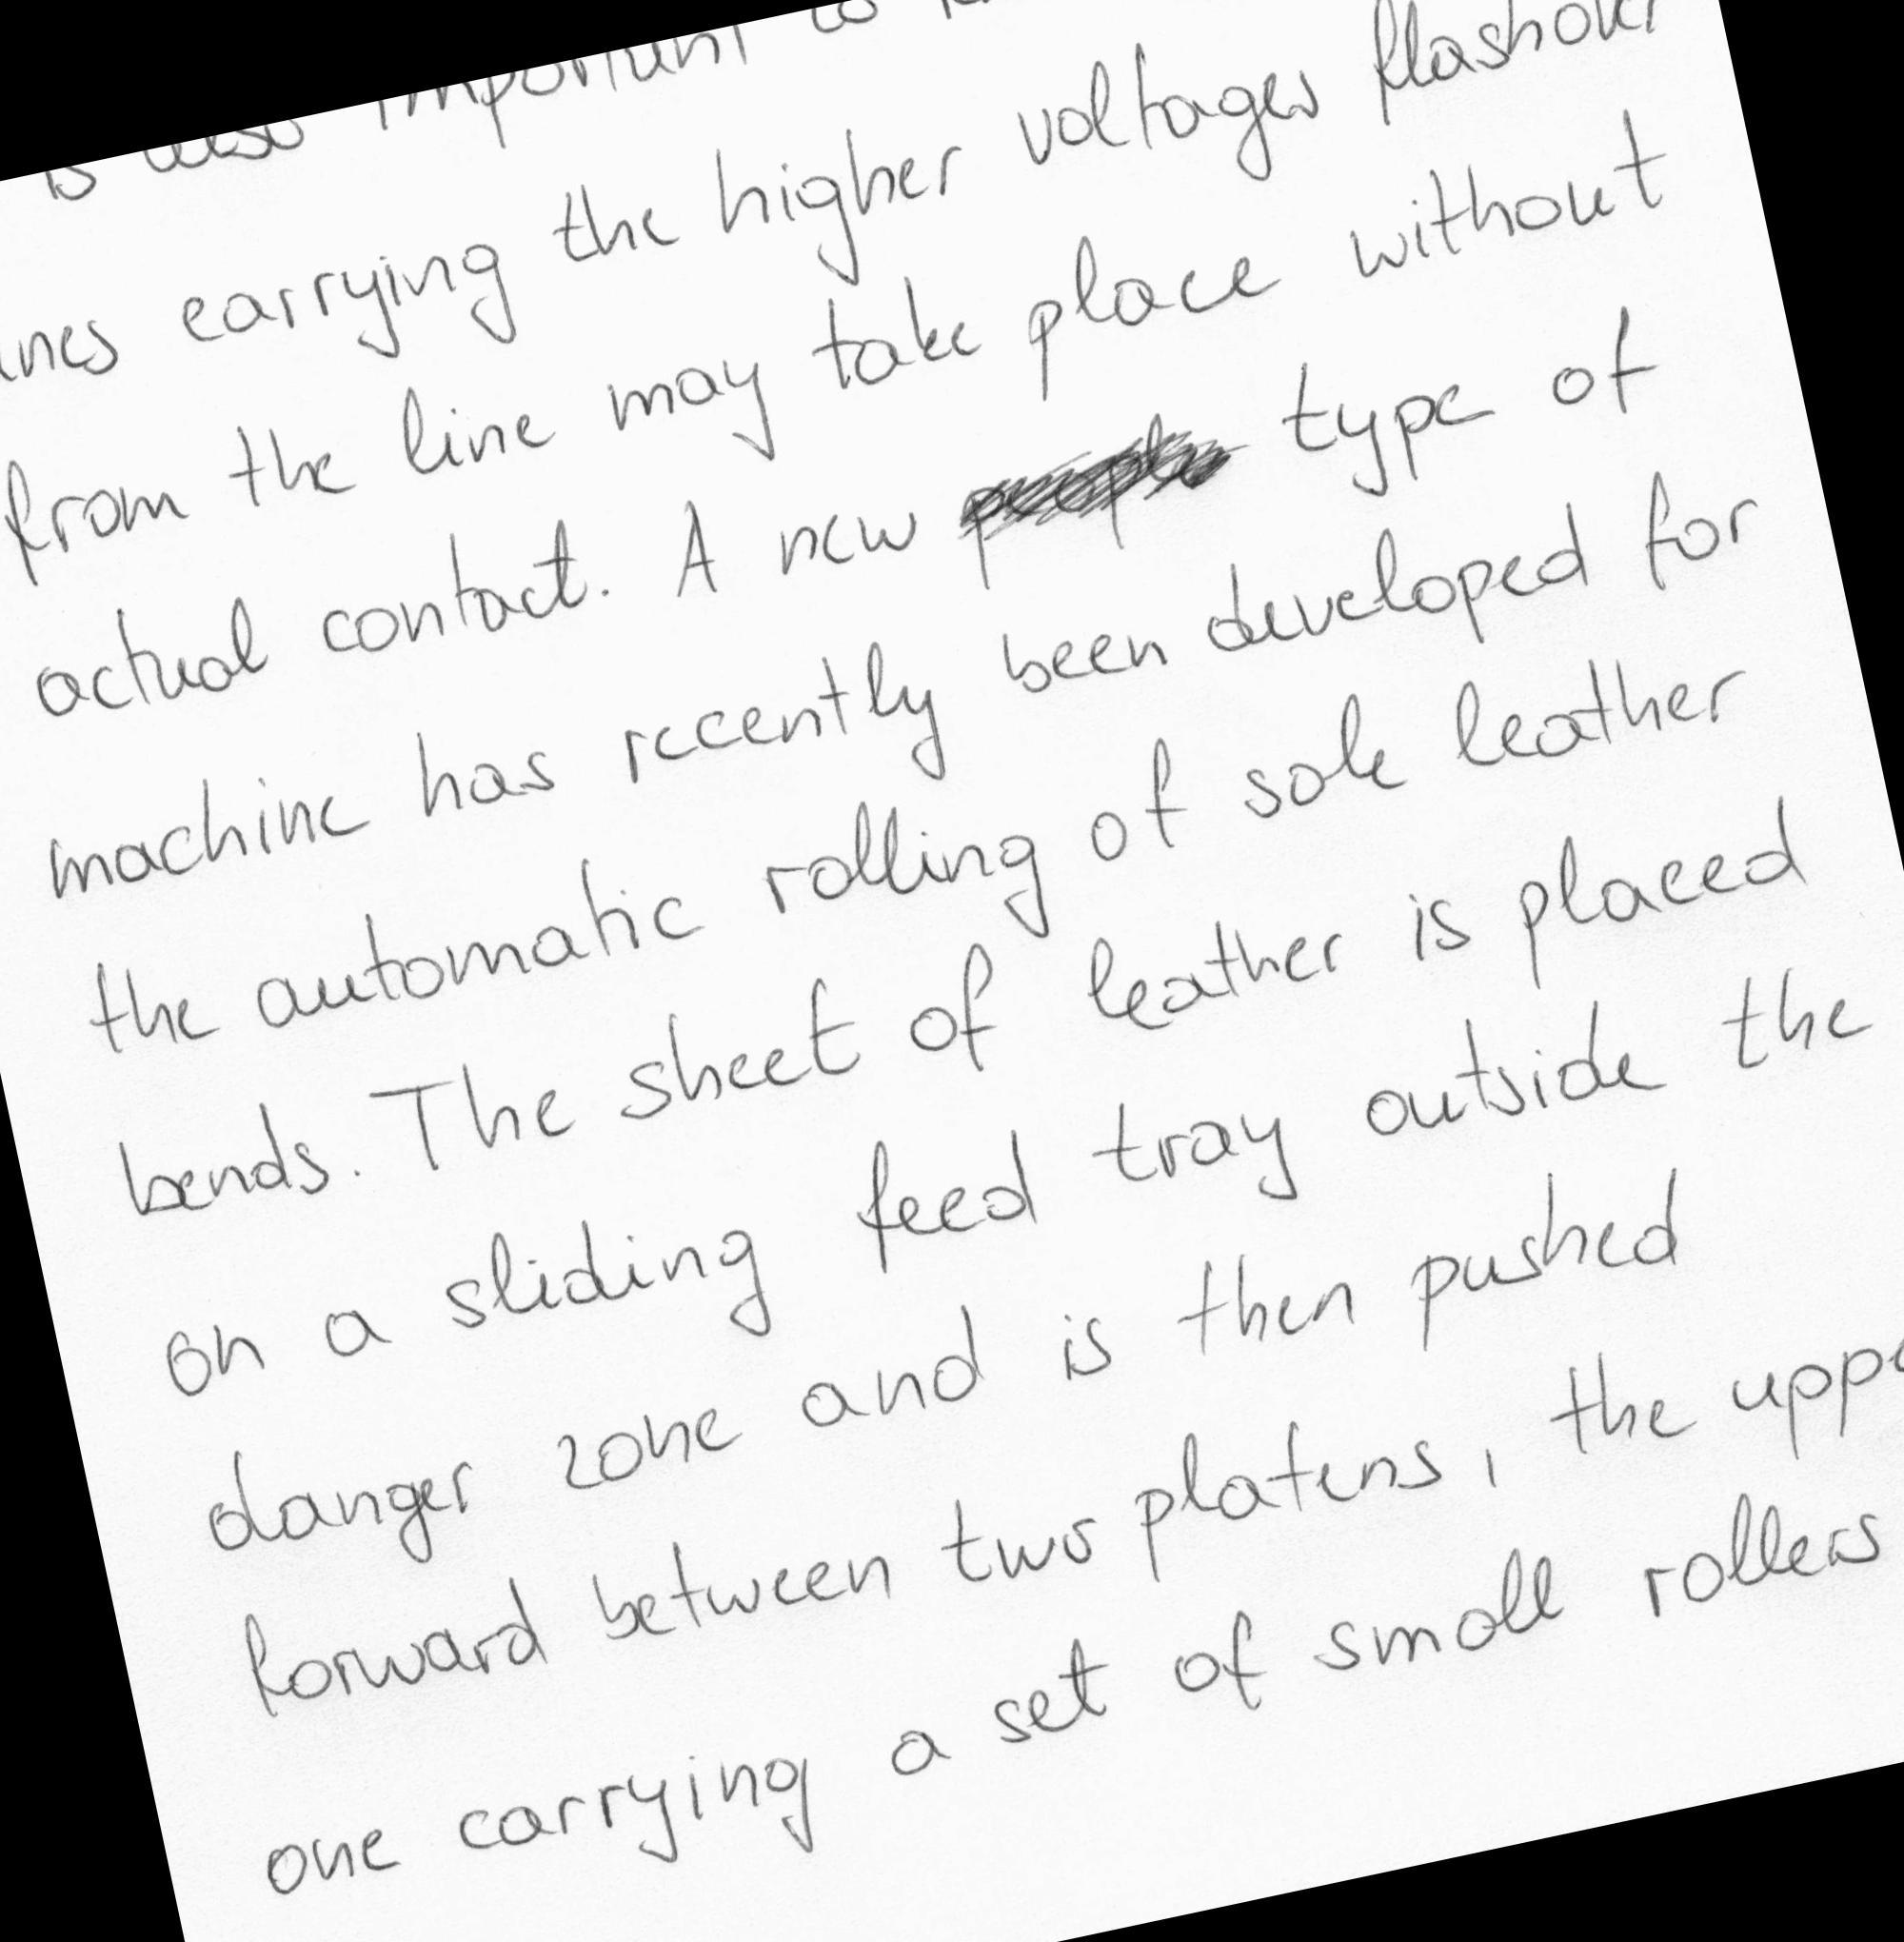 is also important to
carrying the higher voltages flashover
from the line may take place without
actual contact. A new type of
machine has recently been developed for
the automatic rolling of sole leather
bends. The sheet of leather is placed
on a sliding feed tray outside the
danger zone and is then pushed
forward between two platens, the
one carrying a set of small rollers